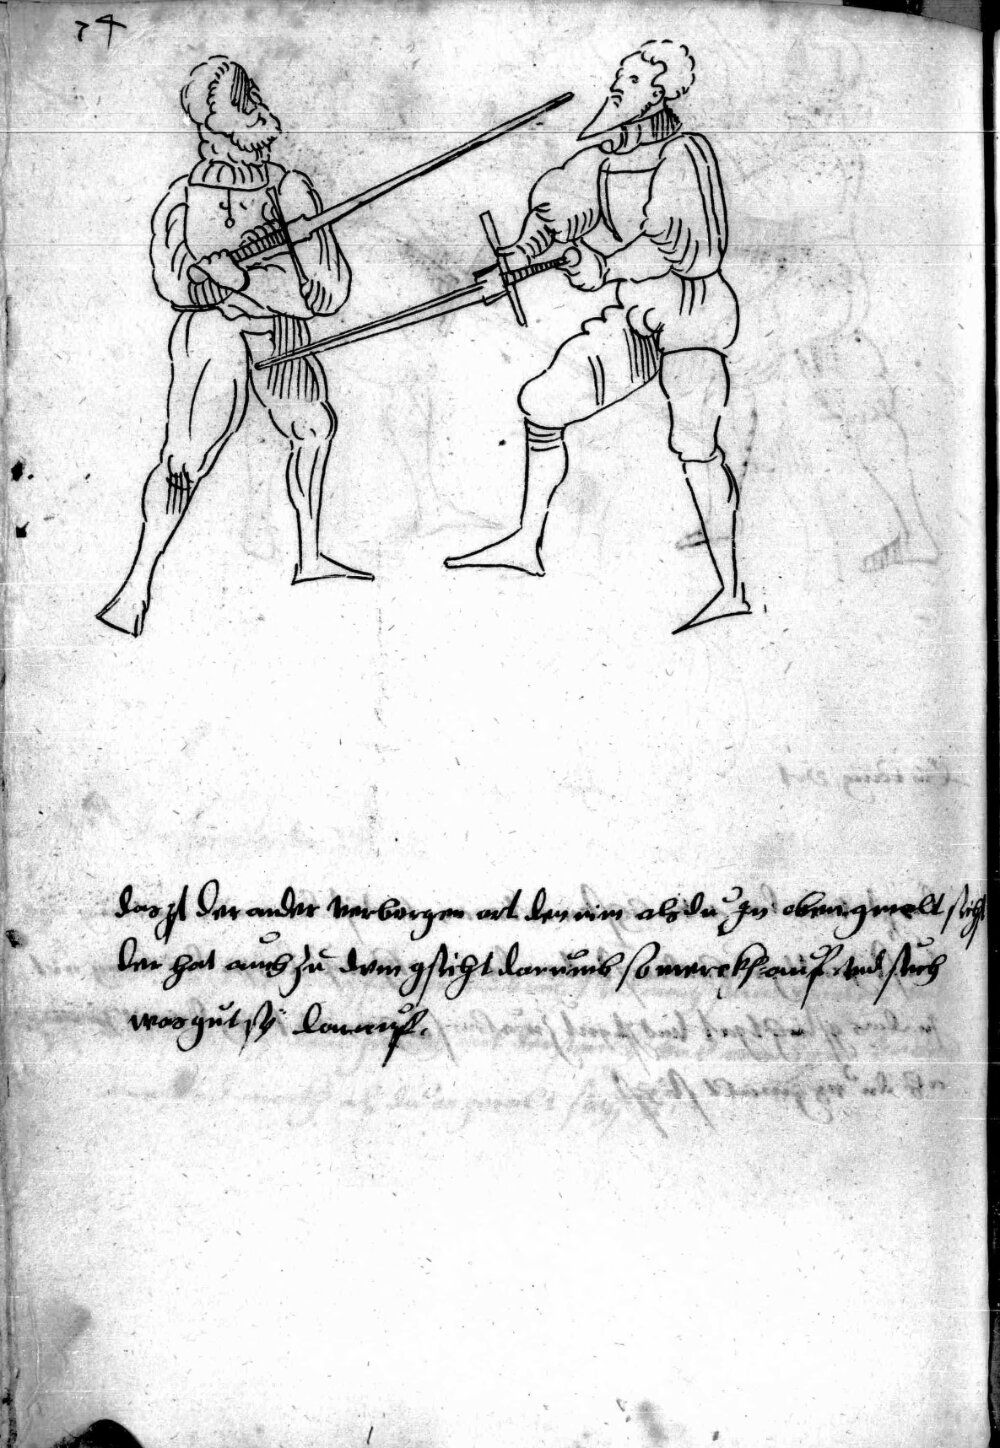 74
das ist der ander verborgen ort den nim als du In oben gmelt sichst
der hat auch zu dem gsicht darumb so mercks auf vnd such
was gut sy darauf.